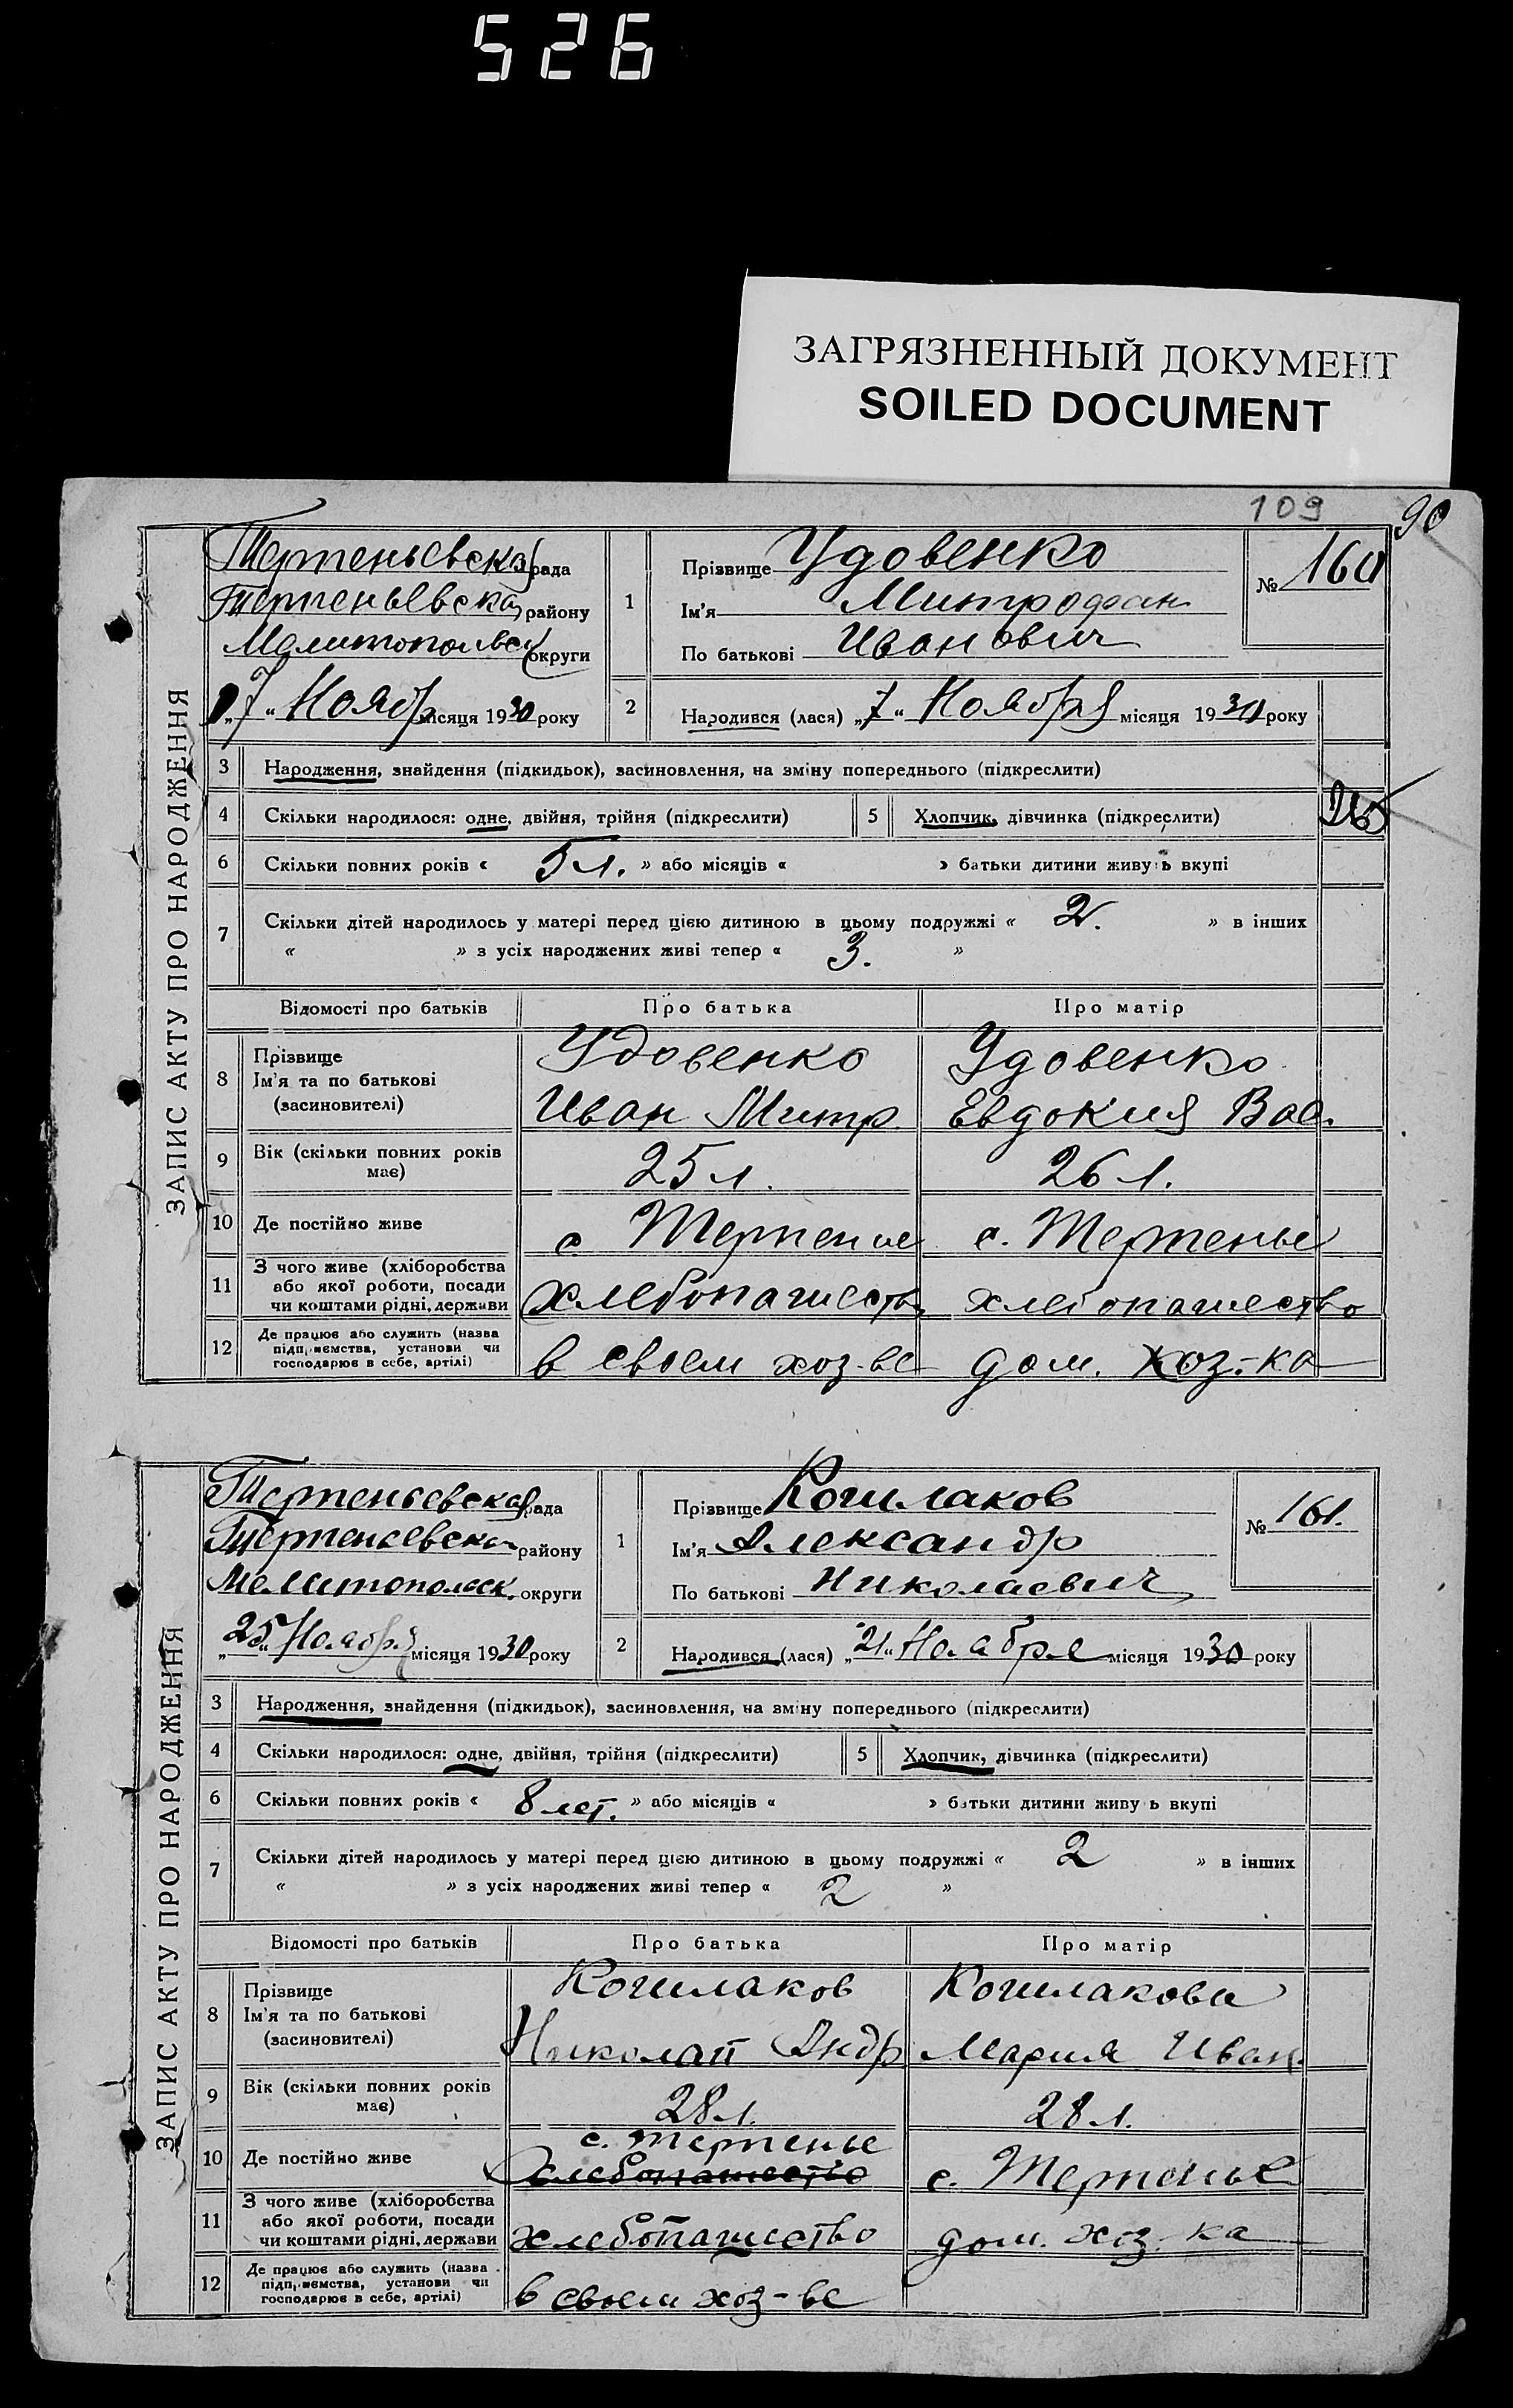 526
ЗАГРЯЗНЕННЫЙ ДОКУМЕНТ
SOILED DOCUMENT
109 90
ЗАПИС АКТУ ПРО НАРОДЖЕННЯ
Терпеньевская рада
Терпеньевская району
Мелитопольск округи
„7“ Ноябр місяця 1930 року
1 Прізвище Удовенко
Ім'я Митрофан
По батькові Иванович
№ 160
2 Народився (лася) „7“ Ноября місяця 1930 року
3 Народження, знайдення (підкидьок), засиновлення, на зміну попереднього (підкреслити)
4 Скільки народилося: одне, двійня, трійня (підкреслити) 5 Хлопчик, дівчинка (підкреслити)
6 Скільки повних років « 5 л. » або місяців « » батьки дитини живуть вкупі
7 Скільки дітей народилось у матері перед цією дитиною в цьому подружжі « 2. » в інших
« » з усіх народжених живі тепер « 3. »
Відомості про батьків Про батька Про матір
8 Прізвище Ім'я та по батькові (засиновителі) Удовенко Удовенко
Иван Митр. Евдокия Вас.
9 Вік (скільки повних років має) 25 л. 26 л.
10 Де постійно живе с Терпение с. Терпенье
11 З чого живе (хліборобства або якої роботи, посади чи коштами рідні, держави хлебопашество хлебопашество
12 Де працює або служить (назва підприємства, установи чи господарює в себе, артілі) в своем хоз-ве дом. хоз-ка
ЗАПИС АКТУ ПРО НАРОДЖЕННЯ
Терпеньевская рада
Терпеньевска району
Мелитопольск. округи
„25“ Ноября місяця 1930 року
1 Прізвище Кошлаков
Ім'я Александр
По батькові Николаевич
№ 161.
2 Народився (лася) „21“ Ноабря місяця 1930 року
3 Народження, знайдення (підкидьок), засиновлення, на зміну попереднього (підкреслити)
4 Скільки народилося: одне, двійня, трійня (підкреслити) 5 Хлопчик, дівчинка (підкреслити)
6 Скільки повних років « 8 лет. » або місяців « » батьки дитини живуть вкупі
7 Скільки дітей народилось у матері перед цією дитиною в цьому подружжі « 2 » в інших
« » з усіх народжених живі тепер « 2 »
Відомості про батьків Про батька Про матір
8 Прізвище Ім'я та по батькові (засиновителі) Кошлаков Кошлакова
Николай Андр Мария Иван.
9 Вік (скільки повних років має) 28 л. 28 л.
10 Де постійно живе с. Терпенье хлебопашество с. Терпенье
11 З чого живе (хліборобства або якої роботи, посади чи коштами рідні, держави хлебопашество дом. хоз-ка
12 Де працює або служить (назва підприємства, установи чи господарює в себе, артілі) в своем хоз-ве